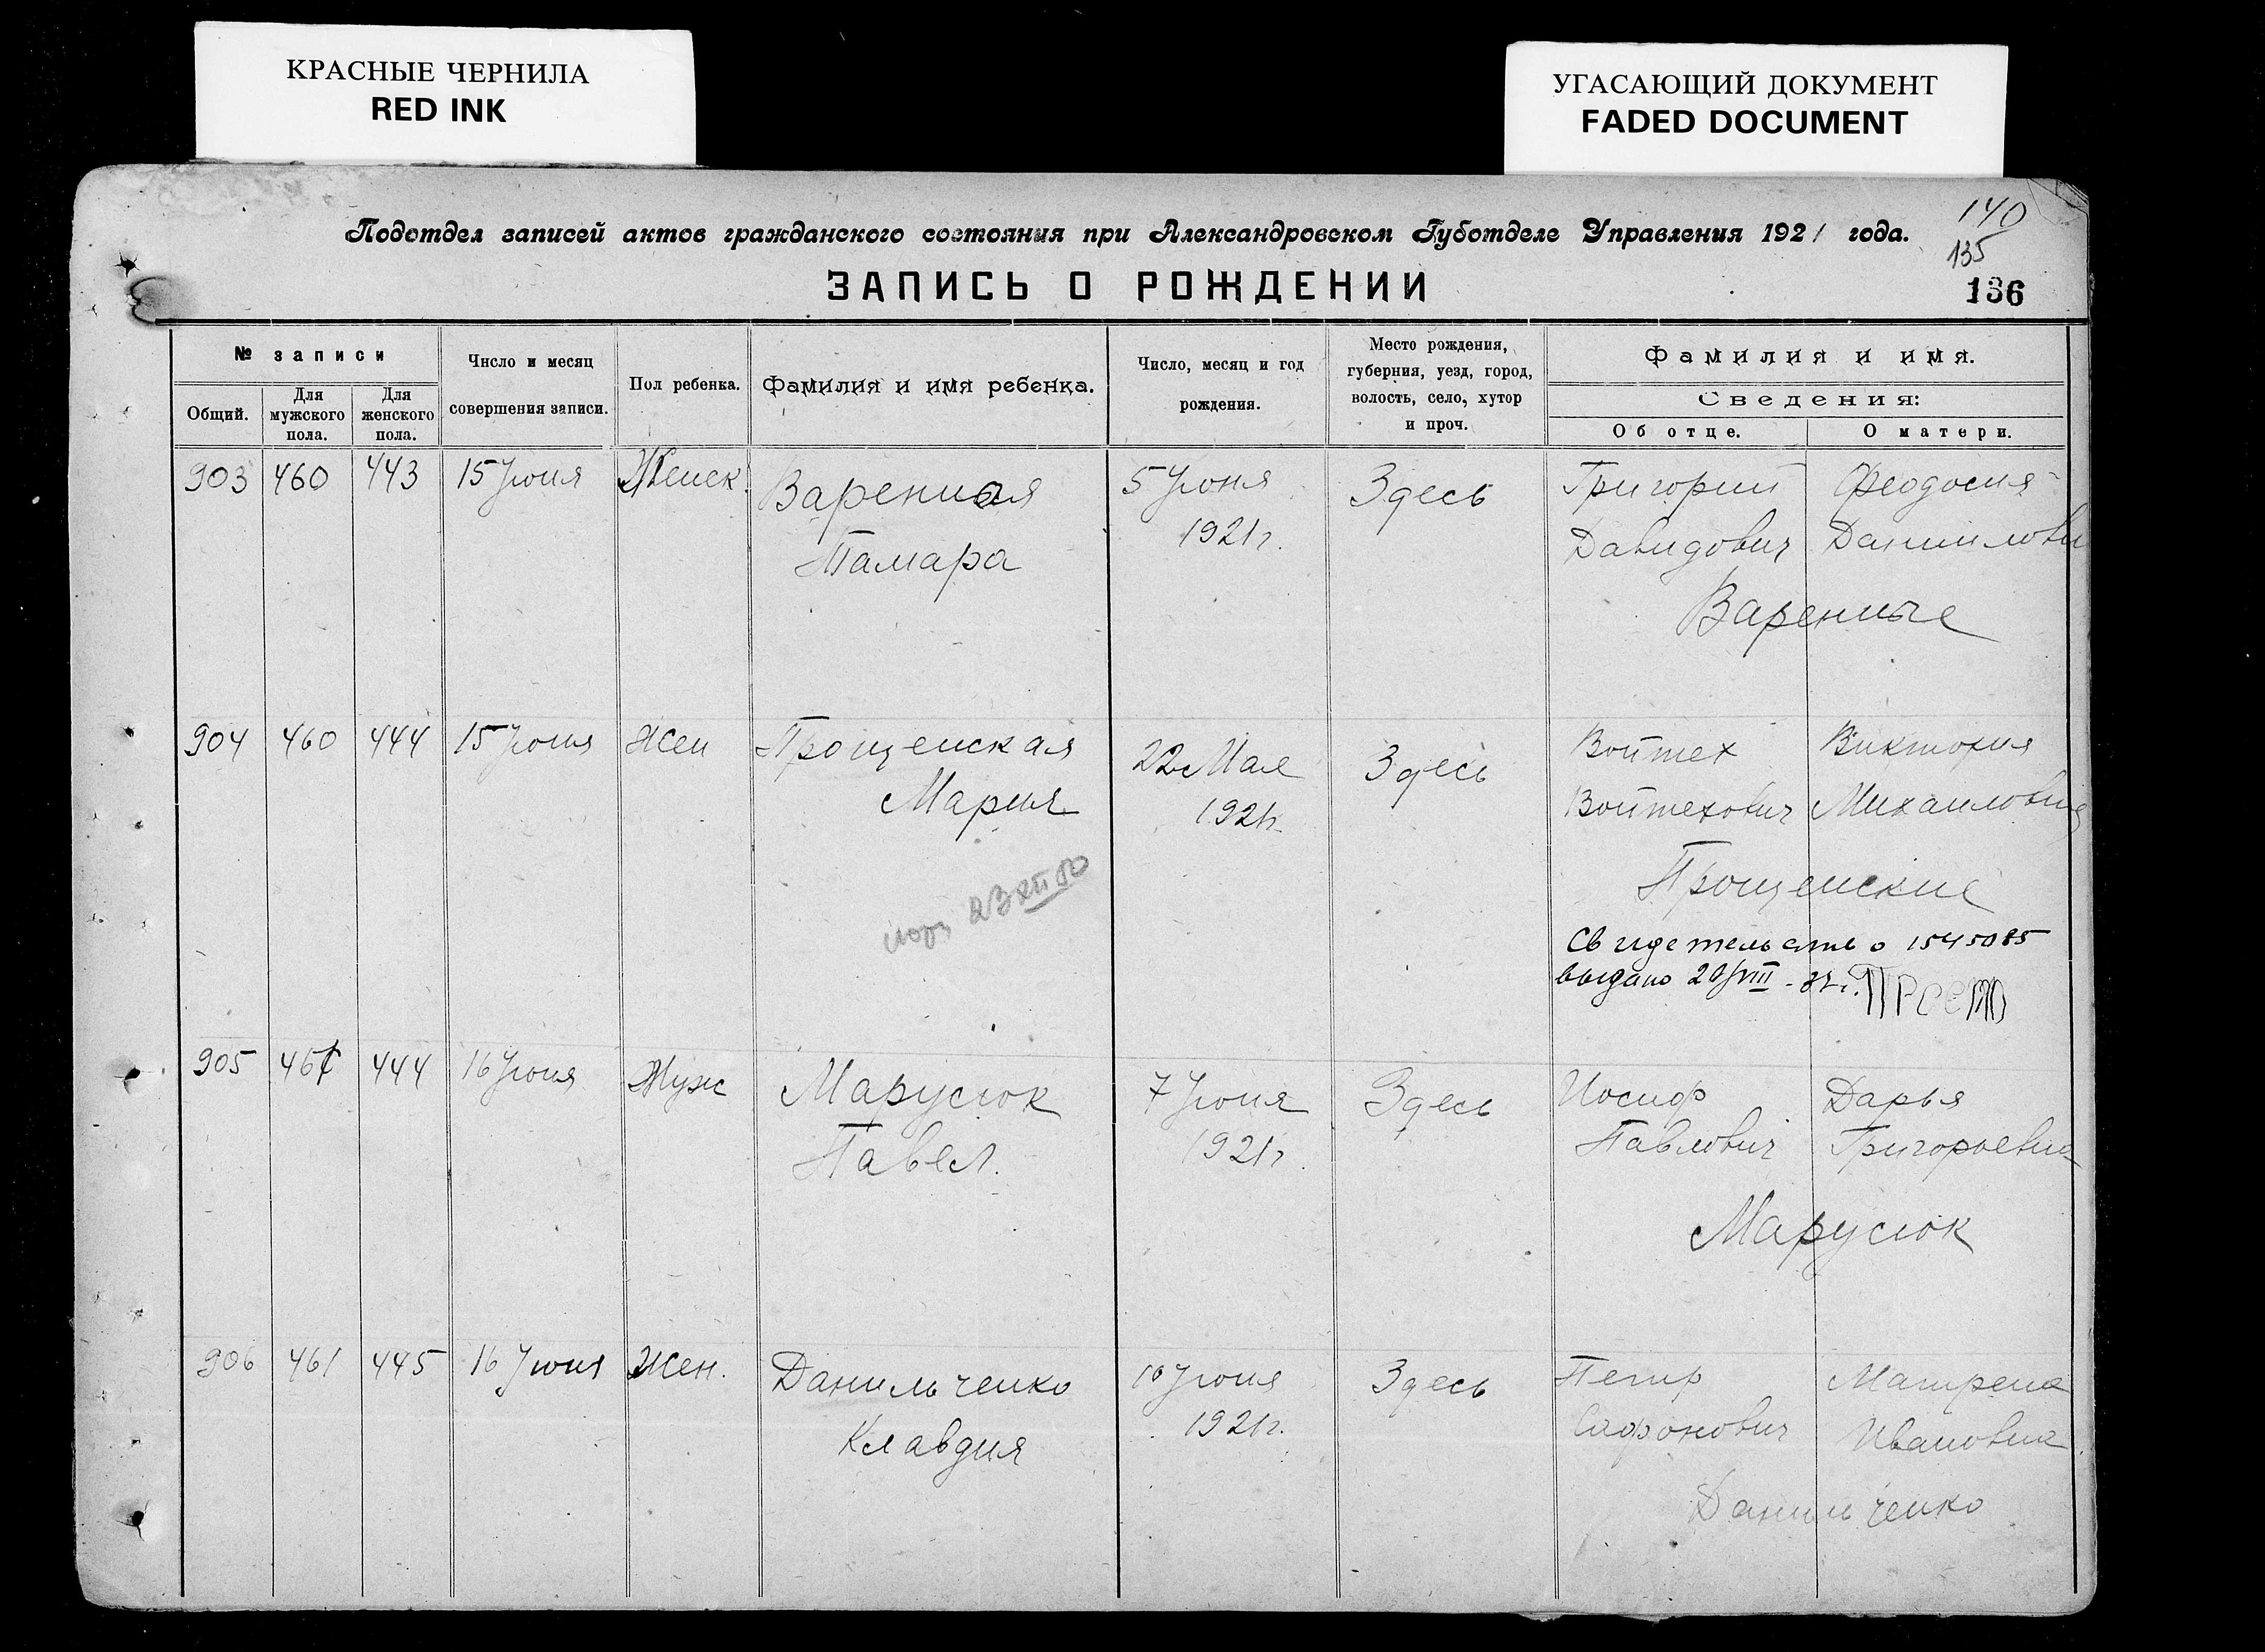 КРАСНЫЕ ЧЕРНИЛА
RED INK
УГАСАЮЩИЙ ДОКУМЕНТ
FADED DOCUMENT
140
Подотдел записей актов гражданского состояния при Александровском Губотделе Управления 1921 года.
135
ЗАПИСЬ О РОЖДЕНИИ
136
№ записи
Общий.
Для мужского пола.
Для женского пола.
Число и месяц совершения записи.
Пол ребенка.
Фамилия и имя ребенка.
Число, месяц и год рождения.
Место рождения, губерния, уезд, город, волость, село, хутор и проч.
Фамилия и имя.
Сведения:
Об отце.
О матери.
903 460 443 15 Июня Женск. Вареная 5 Июня Здесь Григорий Феодосия
Тамара 1921г. Давидович Даниловн
Вареные
904 460 444 15 Июня Жен Прощенская 22 Мая Здесь Войтех Виктория
Мария 1921г. Войтехович Михайловна
Прощенские
23 XII 50
Свидетельство 1545085
выдано
905 461 444 16 Июня Муж Марусюк 7 Июня Здесь Иосиф Дарья
Павел. 1921г. Павлович Григорьевна
Марусюк
906 461 445 16 Июня Жен. Данильченко 10 Июня Здесь Петр Матрена
Клавдия 1921г. Сафонович Ивановна
Данильченко